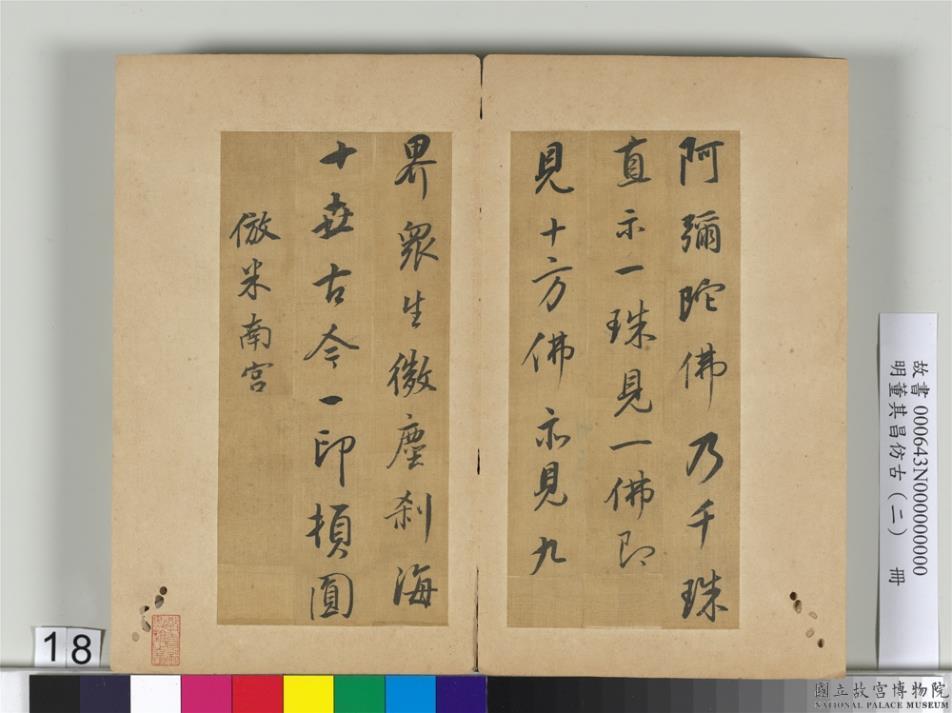 阿彌陀佛乃千珠
直示一珠見一佛即
見十方佛亦見九
界衆生微塵刹海
十世古今一印頓圓
倣米南宮
故書 000643N000000000
明董其昌仿古（二） 冊
18
國立故宮博物院
NATIONAL PALACE MUSEUM